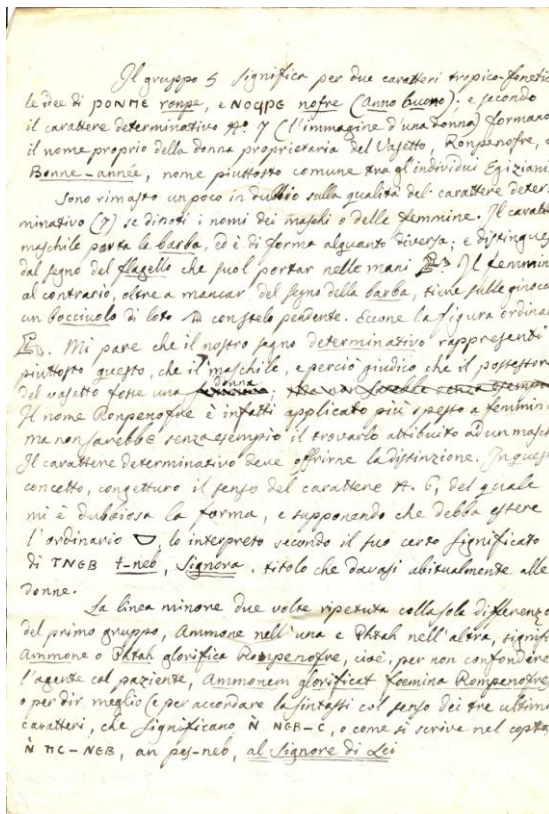 Il gruppo 5 significa per due caratteri tropico-fonetic
le idee di ⲣⲟⲛⲡⲉ ronpe, e ⲛⲟϥⲣⲉ nofre (Anno buono); e secondo
il carattere determinativo Nº. 7 (l'immagine d'una donna) formano
il nome proprio della donna proprietaria del Vasetto, Ronpenofre, o
Bonne-année, nome piuttosto comune tra gl'individui Egiziani.
Sono rimasto un poco in dubbio sulla qualità del carattere deter
minativo (7) se dinoti i nomi dei maschi o delle femmine. Il caratte
maschile porta la barba, ed è di forma alquanto diversa; e distingues
dal segno del flagello che suol portar nelle mani Il femmin
al contrario, oltre a mancar del segno della barba, tiene sulle ginocc
un bocciuolo di loto con stelo pendente. Eccone la figura ordinar
Mi pare che il nostro segno determinativo rappresenti
piuttosto questo, che il maschile, e perciò giudico che il possessore
del vasetto fosse una donna;
Il nome Ronpenofre è infatti applicato più spesso a femmine
ma non sarebbe senza esempio il trovarlo attribuito ad un masch
Il carattere determinativo deve offrirne la distinzione. In quest
concetto, congetturo il senso del carattere N. 6, del quale
mi è dubbiosa la forma, e supponendo che debba essere
l'ordinario , lo interpreto secondo il suo certo significato
di ⲧⲛⲉⲃ t-neb, Signora, titolo che davasi abitualmente alle
donne.
La linea minore due volte ripetuta colla sole differenze
del primo gruppo, Ammone nell'una e Phtah nell'altra, signifi
Ammone o Phtah glorifica Rompenofre, cioè, per non confondere
l'agente col paziente, Ammonem glorificat foemina Rompenofre,
o per dir meglio (e per accordare la sintassi col senso dei tre ultimi
caratteri, che significano ⲛ̀ ⲛⲉⲃ-ⲥ, o come si scrive nel copto
ⲛ̀ ⲡⲉⲥ-ⲛⲉⲃ, an pes-neb, al Signore di Lei